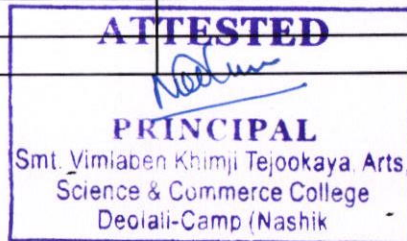 ATTESTED
PRINCIPAL
Smt. Vimlaben Khimji Tejookaya Arts,
Science & Commerce College
Deolali-Camp (Nashik